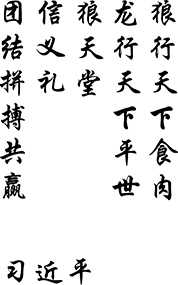 狼行天下食肉
龙行天下平世
狼天堂
信义礼
团结拼搏共赢
习近平